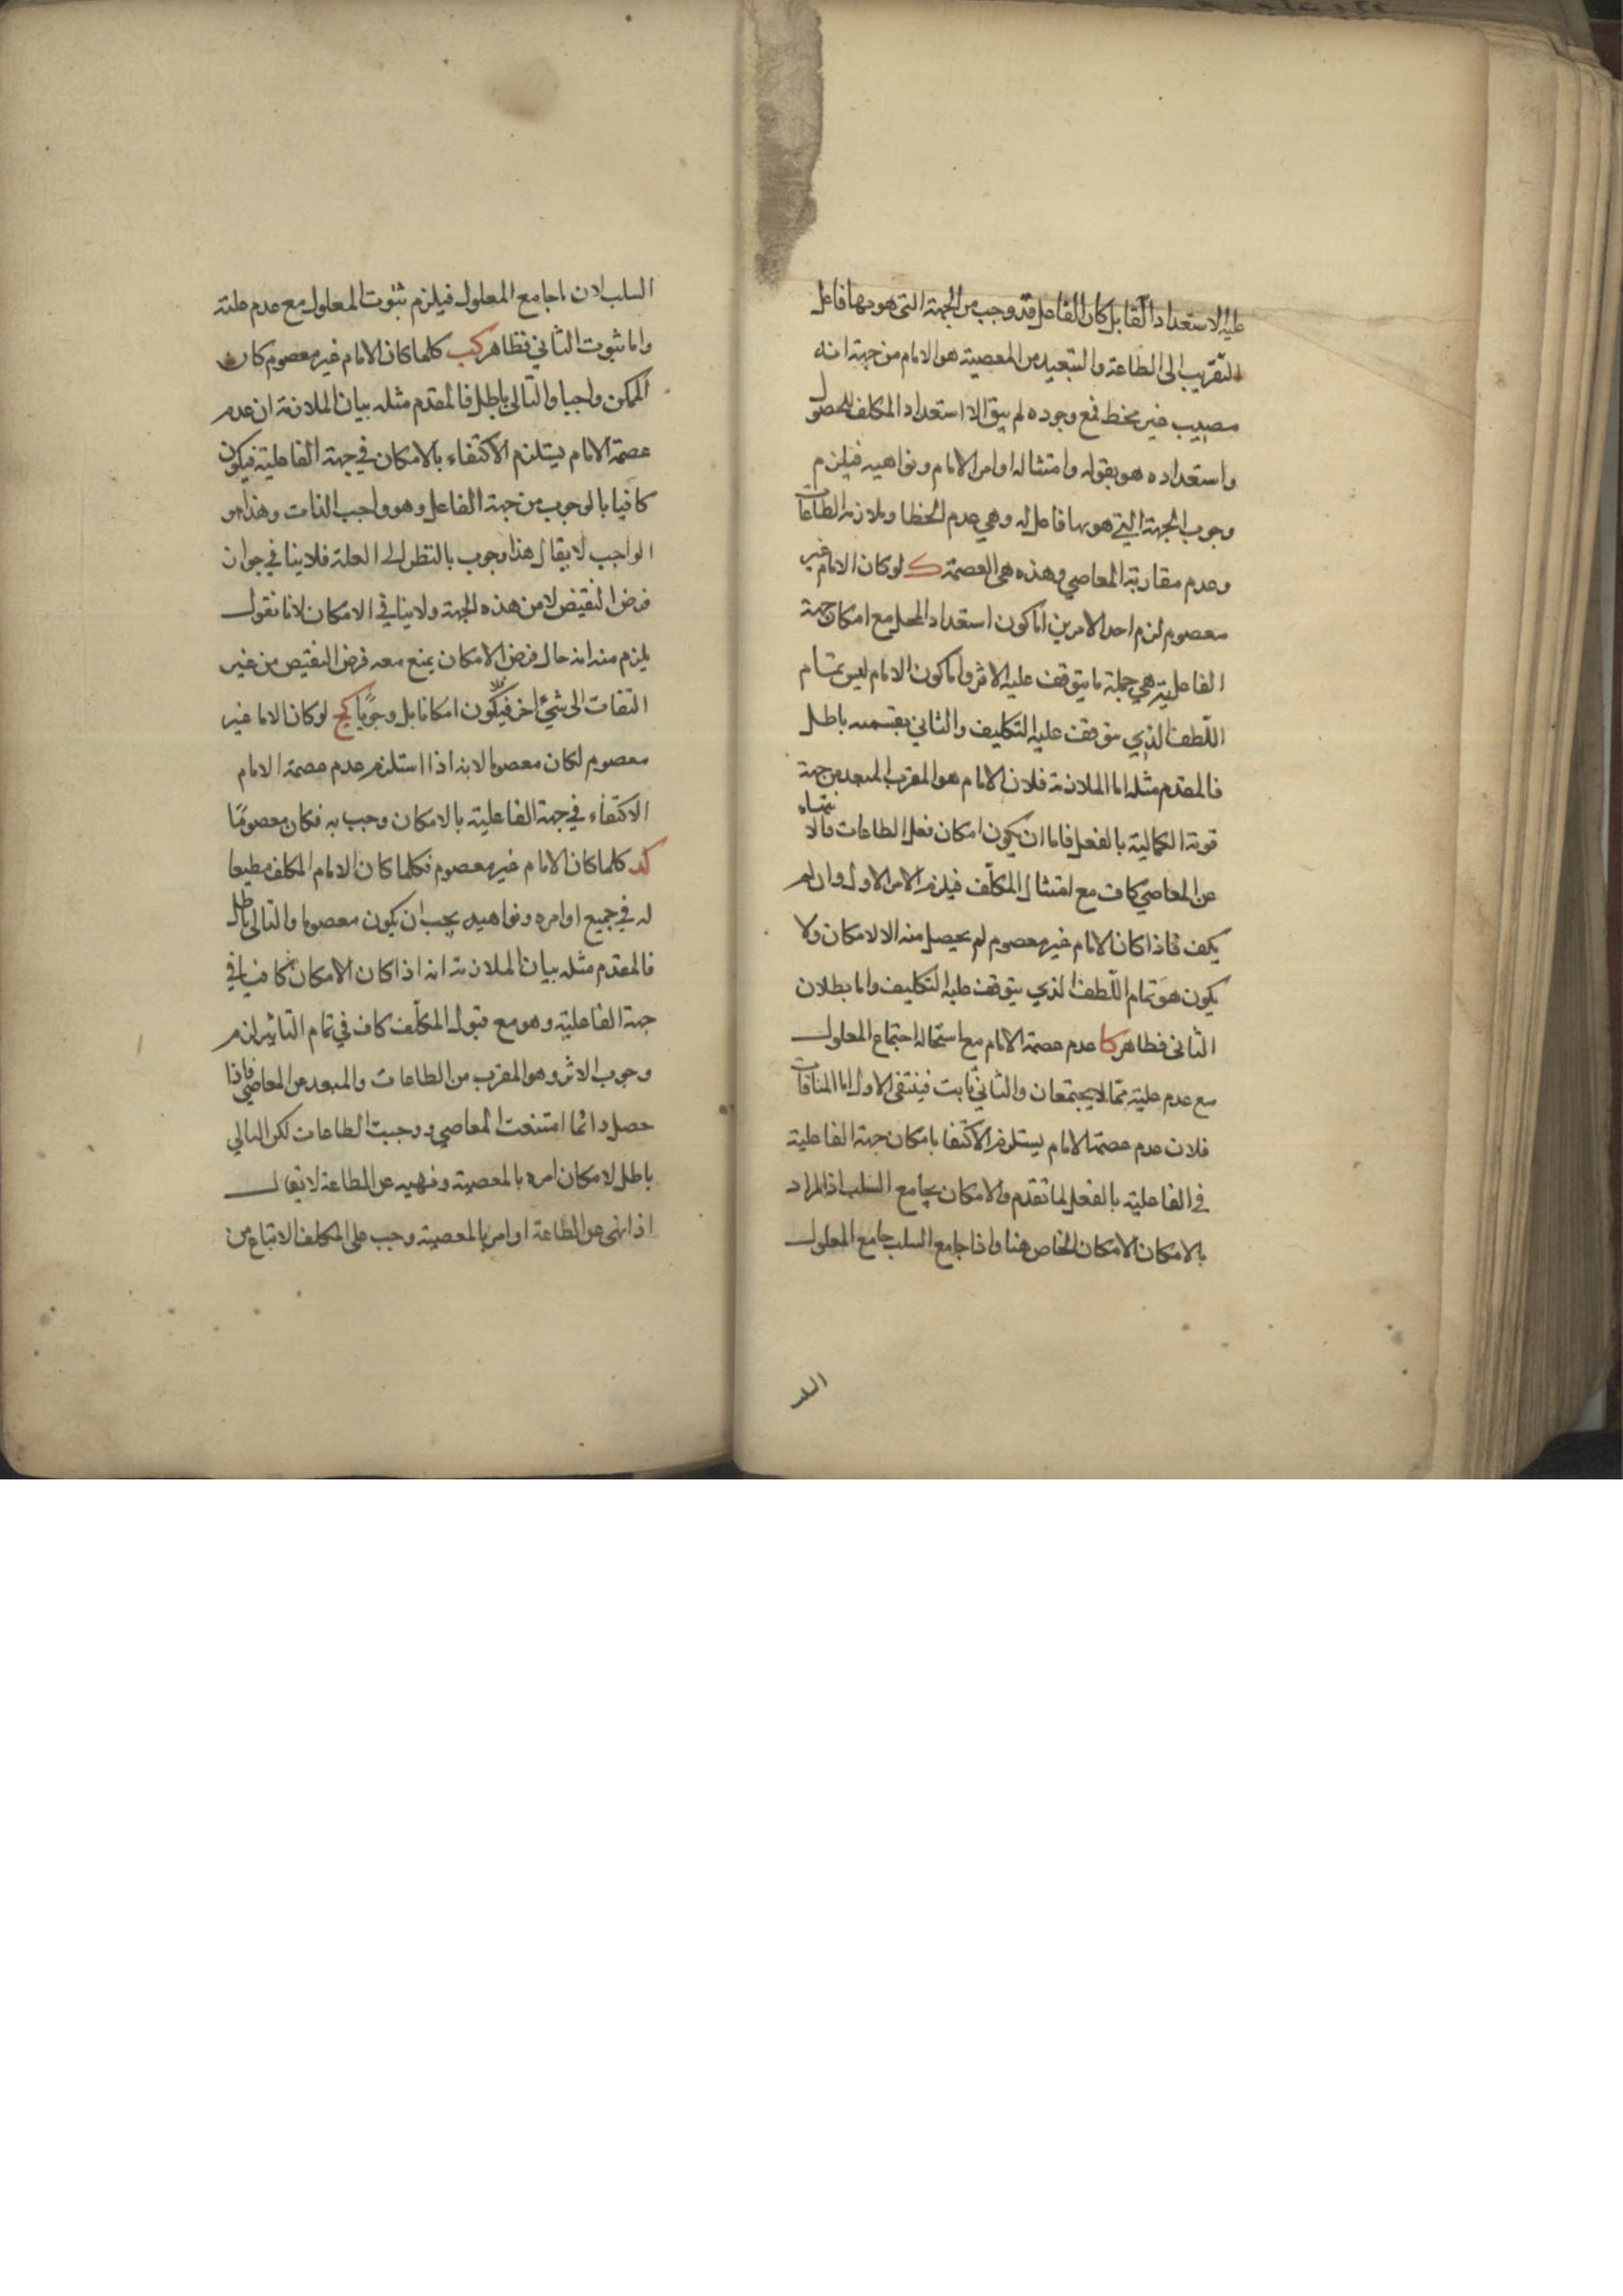 عليه الاستعداد القابل كان الفاعل قد وجب من الجهة التى هو بها فاعل
التقريب الى الطاعة والتبعيد من المعصية هو الامام من جهة انه
مصيب غير مخط فمع وجوده لم يبق الا استعداد المكلف للحصول
واستعداده هو بقوله وامتثاله اوامر الامام ونواهيه فيلزم
وجوب الجهة التي هو بها فاعل له وهي عدم الخطا وملازمة الطاعات
وعدم مقاربة المعاصي وهذه هى العصمة ك لو كان الامام غير
معصوم لزم احد الامرين اما كون استعداد المحل مع امكان جهة
الفاعلية هي جملة ما يتوقف عليه الاثر واما كون الامام ليس بتمام
اللطف الذي يتوقف عليه التكليف والثاني بقسميه باطل
فالمقدم مثله اما الملازمة فلان الامام هو المقرب المبعد من جهة
قوته الكمالية بالفعل فاما ان يكون امكان فعل الطاعات والانتهاء
عن المعاصي كاف مع امتثال المكلف فيلزم الامر الاول وان لم
يكف فاذا كان الامام غير معصوم لم يحصل منه الا الامكان ولا
يكون هو تمام اللطف الذي يتوقف عليه التكليف واما بطلان
الثانى فظاهر كا عدم عصمة الامام مع استحالة اجتماع المعلول
مع عدم علية مما لا يجتمعان والثاني ثابت فينتفى الاول اما المنافات
فلان عدم عصمة الامام يستلزم الاكتفا بامكان جهة الفاعلية
في الفاعلية بالفعل لما تقدم والامكان يجامع السلب اذ المراد
بالامكان الامكان الخاص هنا واذا جامع السلب جامع المعلول
السلب لان ما جامع المعلول فيلزم ثبوت المعلول مع عدم علته
واما ثبوت الثاني فظاهر كب كلما كان الامام غير معصوم كان
الممكن واجبا والتالى باطل فالمقدم مثله بيان الملازمة ان عدم
عصمة الامام يستلزم الاكتفاء بالامكان في جهة الفاعلية فيكون
كافيا بالوجوب من جهة الفاعل وهو واجب الذات وهذا هو
الواجب لا يقال هذا وجوب بالنظر الى العلة فلا ينافي جواز
فرض النقيض لا من هذه الجهة ولا ينافي الامكان لانا نقول
يلزم منه انه حال فرض الامكان يمنع معه فرض النقيض من غير
التفات الى شئ اخر فلا يكون امكانا بل وجوبا كج لو كان الاما غير
معصوم لكان معصوما لانه اذا استلزم عدم عصمة الامام
الاكتفاء في جهة الفاعلية بالامكان وجب به فكان معصوما
كد كلما كان الامام غير معصوم فكلما كان الامام المكلف مطيعا
له في جميع اوامره ونواهيه يجب ان يكون معصوما والتالى باطل
فالمقدم مثله بيان الملازمة انه اذا كان الامكان كافيا في
جهة الفاعلية وهو مع قبول المكلف كاف في تمام التاثير لزم
وجوب الاثر وهو المقرب من الطاعات والمبعد عن المعاصي فاذا
حصل دائما امتنعت المعاصي ووجبت الطاعات لكن التالي
باطل لامكان امره بالمعصية ونهيه عن الطاعة لا يقال
اذا نهى عن الطاعة او امر بالمعصية وجب على المكلف الامتناع من